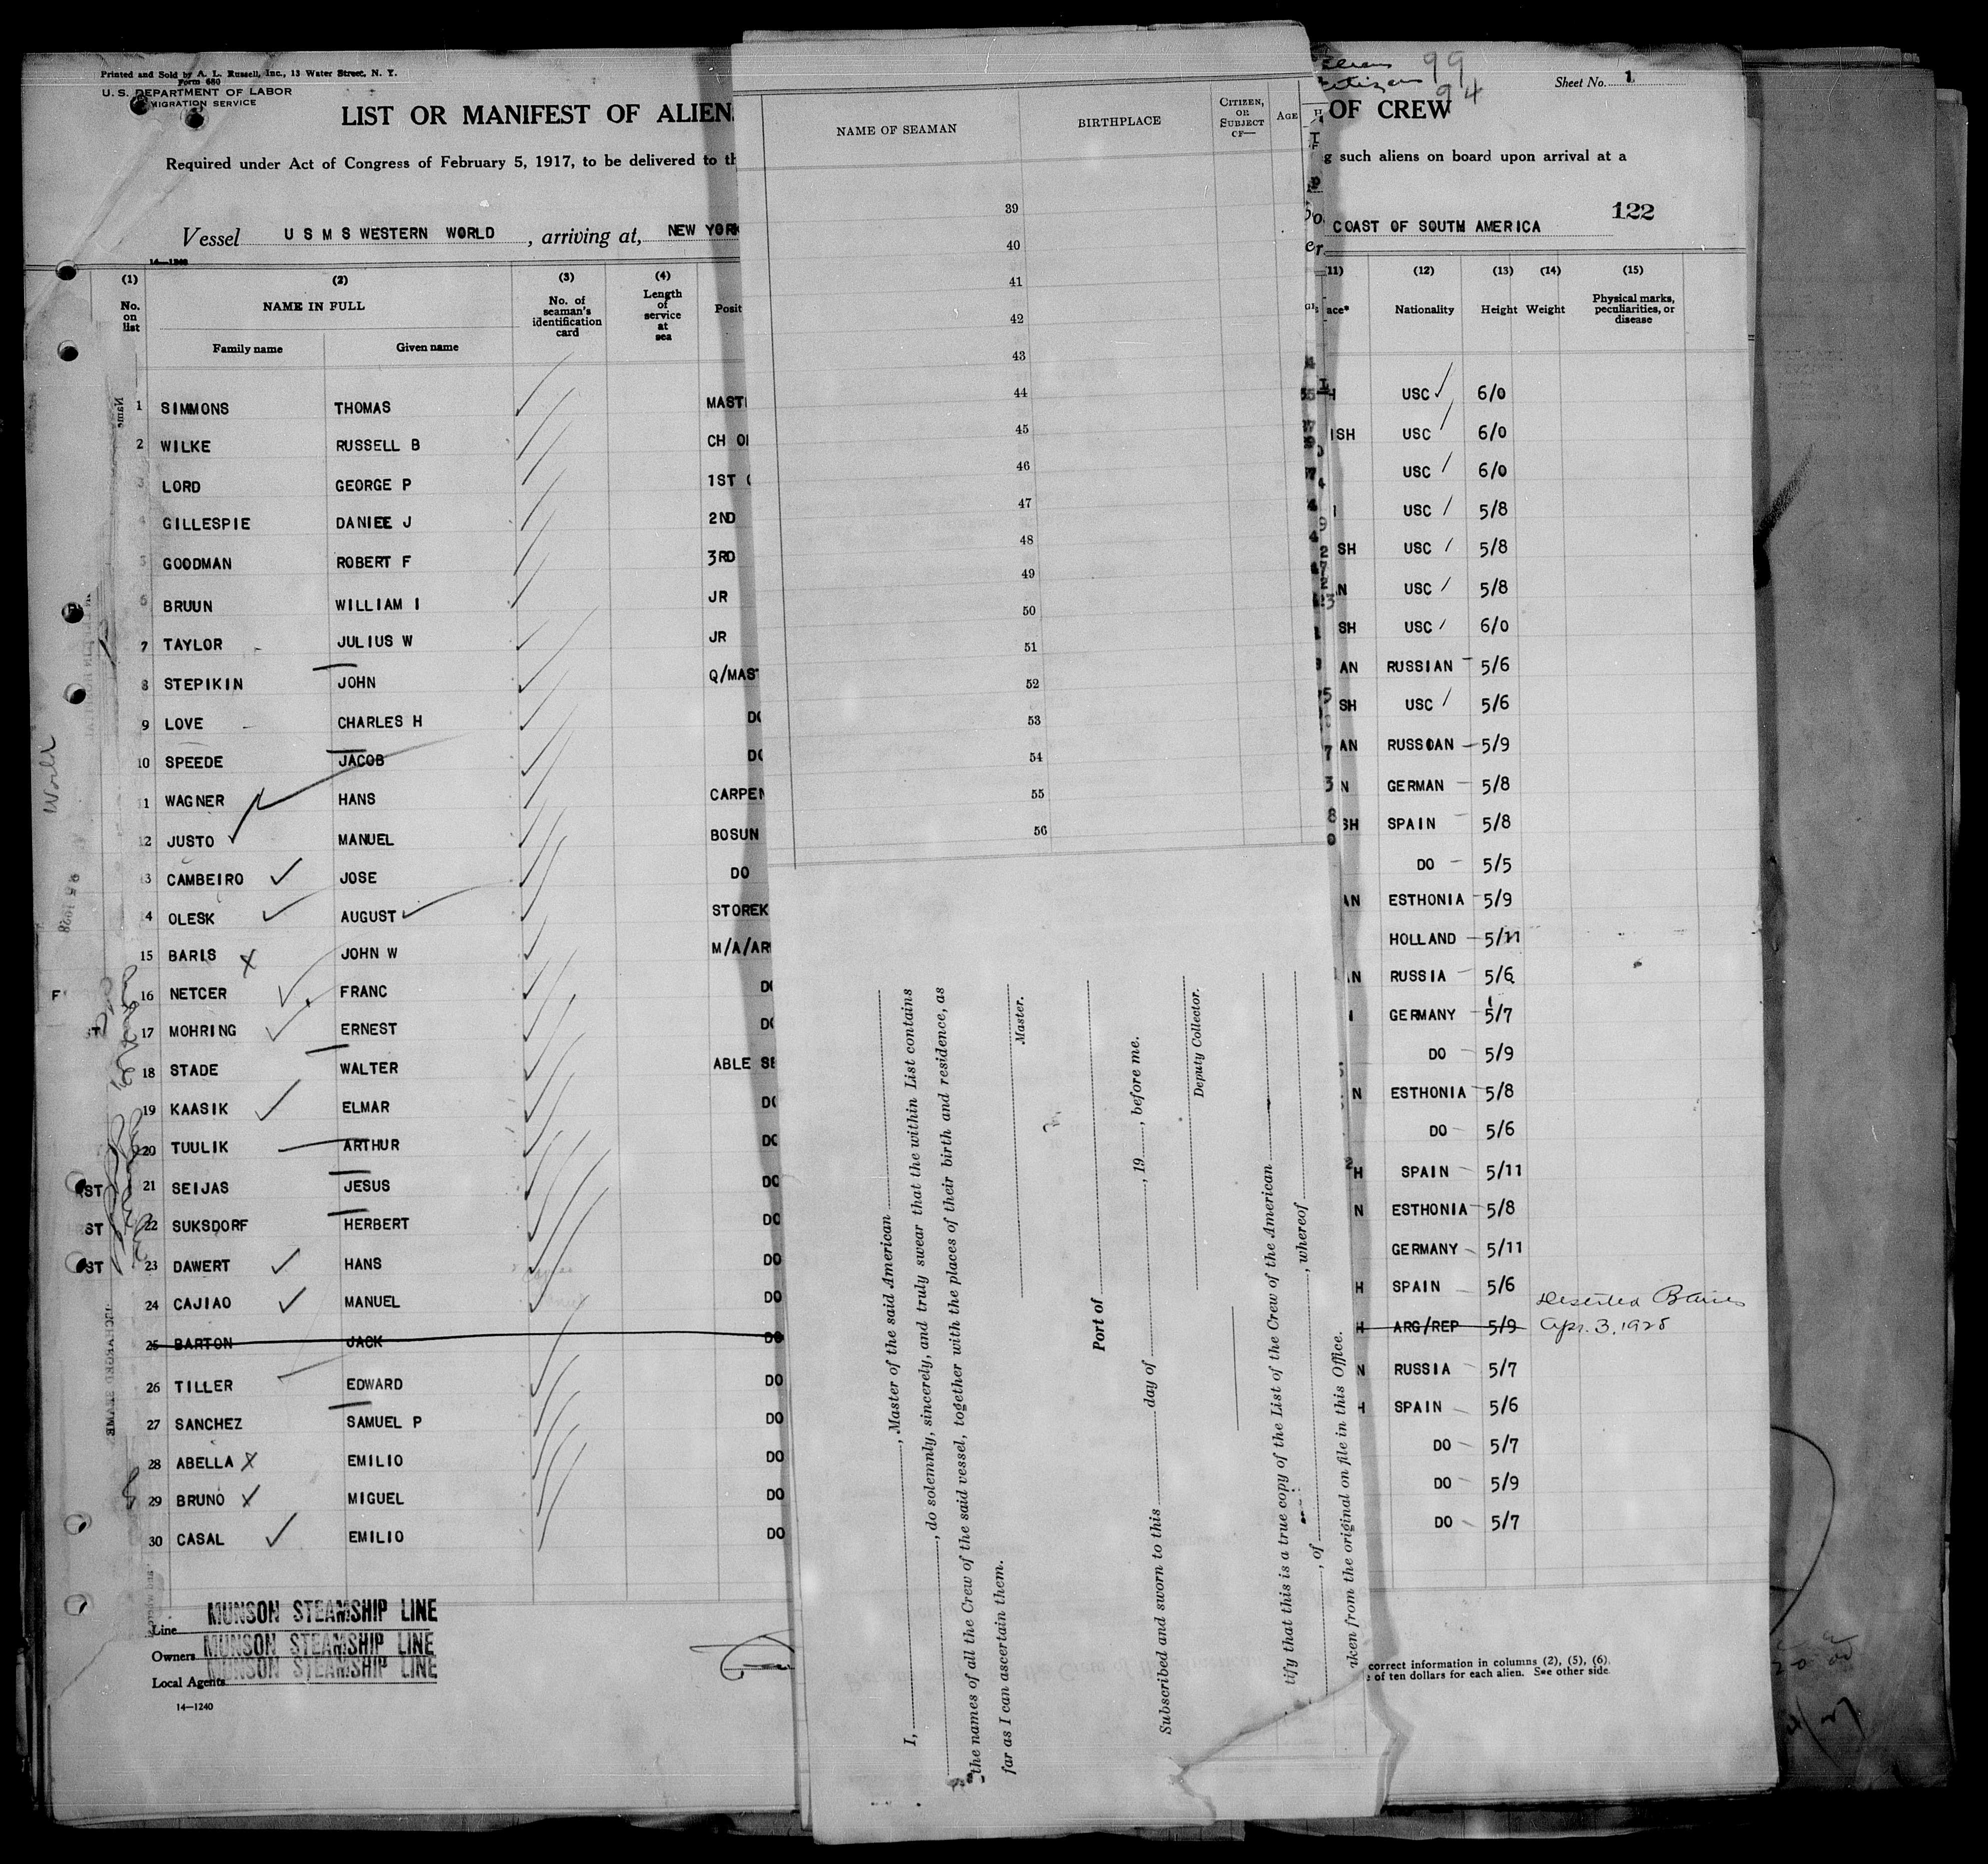 Printed and Sold by A. L. Russell, Inc., 13 Water Street, N. Y.
Form 680
U. S. DEPARTMENT OF LABOR
MIGRATION SERVICE
LIST OR MANIFEST OF ALIEN
OF CREW
99
94
Sheet No. 1
Required under Act of Congress of February 5, 1917, to be delivered to th
g such aliens on board upon arrival at a
Vessel U S M S WESTERN WORLD , arriving at, NEW YORK
COAST OF SOUTH AMERICA
122
14—1240
(1) (2) (3) (4) (11) (12) (13) (14) (15)
No. on list NAME IN FULL No. of seaman's identification card Length of service at sea Posit ace* Nationality Height Weight Physical marks, peculiarities, or disease
Family name Given name
1 SIMMONS THOMAS MAST H USC 6/0
2 WILKE RUSSELL B CH O ISH USC 6/0
3 LORD GEORGE P 1ST USC 6/0
4 GILLESPIE DANIEE J 2ND USC 5/8
5 GOODMAN ROBERT F 3RD SH USC 5/8
6 BRUUN WILLIAM I JR N USC 5/8
7 TAYLOR JULIUS W JR SH USC 6/0
8 STEPIKIN JOHN Q/MAS AN RUSSIAN 5/6
9 LOVE CHARLES H DO SH USC 5/6
10 SPEEDE JACOB DO AN RUSSOAN 5/9
11 WAGNER HANS CARPEN N GERMAN 5/8
12 JUSTO MANUEL BOSUN SH SPAIN 5/8
13 CAMBEIRO JOSE DO DO 5/5
14 OLESK AUGUST STOREK AN ESTHONIA 5/9
15 BARIS JOHN W M/A/AR HOLLAND 5/11
16 NETCER FRANC DO N RUSSIA 5/6
17 MOHRING ERNEST DO GERMANY 5/7
18 STADE WALTER ABLE SE DO 5/9
19 KAASIK ELMAR DO N ESTHONIA 5/8
20 TUULIK ARTHUR DO DO 5/6
21 SEIJAS JESUS DO H SPAIN 5/11
22 SUKSDORF HERBERT DO N ESTHONIA 5/8
23 DAWERT HANS DO GERMANY 5/11
24 CAJIAO MANUEL DO H SPAIN 5/6
25 BARTON JACK DO H ARG/REP 5/9 Deserted BAires Apr. 3, 1928
26 TILLER EDWARD DO N RUSSIA 5/7
27 SANCHEZ SAMUEL P DO H SPAIN 5/6
28 ABELLA EMILIO DO DO 5/7
29 BRUNO MIGUEL DO DO 5/9
30 CASAL EMILIO DO DO 5/7
Line MUNSON STEAMSHIP LINE
Owners MUNSON STEAMSHIP LINE
Local Agents MUNSON STEAMSHIP LINE
14—1240
correct information in columns (2), (5), (6),
of ten dollars for each alien. See other side
World
ST
ST
ST
ST
NAME OF SEAMAN BIRTHPLACE CITIZEN, OR SUBJECT OF— AGE
39
40
41
42
43
44
45
46
47
48
49
50
51
52
53
54
55
56
I, , Master of the said American
, do solemnly, sincerely, and truly swear that the within List contains
the names of all the Crew of the said vessel, together with the places of their birth and residence, as
far as I can ascertain them.
Master.
Port of
Subscribed and sworn to this day of , 19 , before me.
Deputy Collector.
tify that this is a true copy of the List of the Crew of the American
, of , whereof
aken from the original on file in this Office.